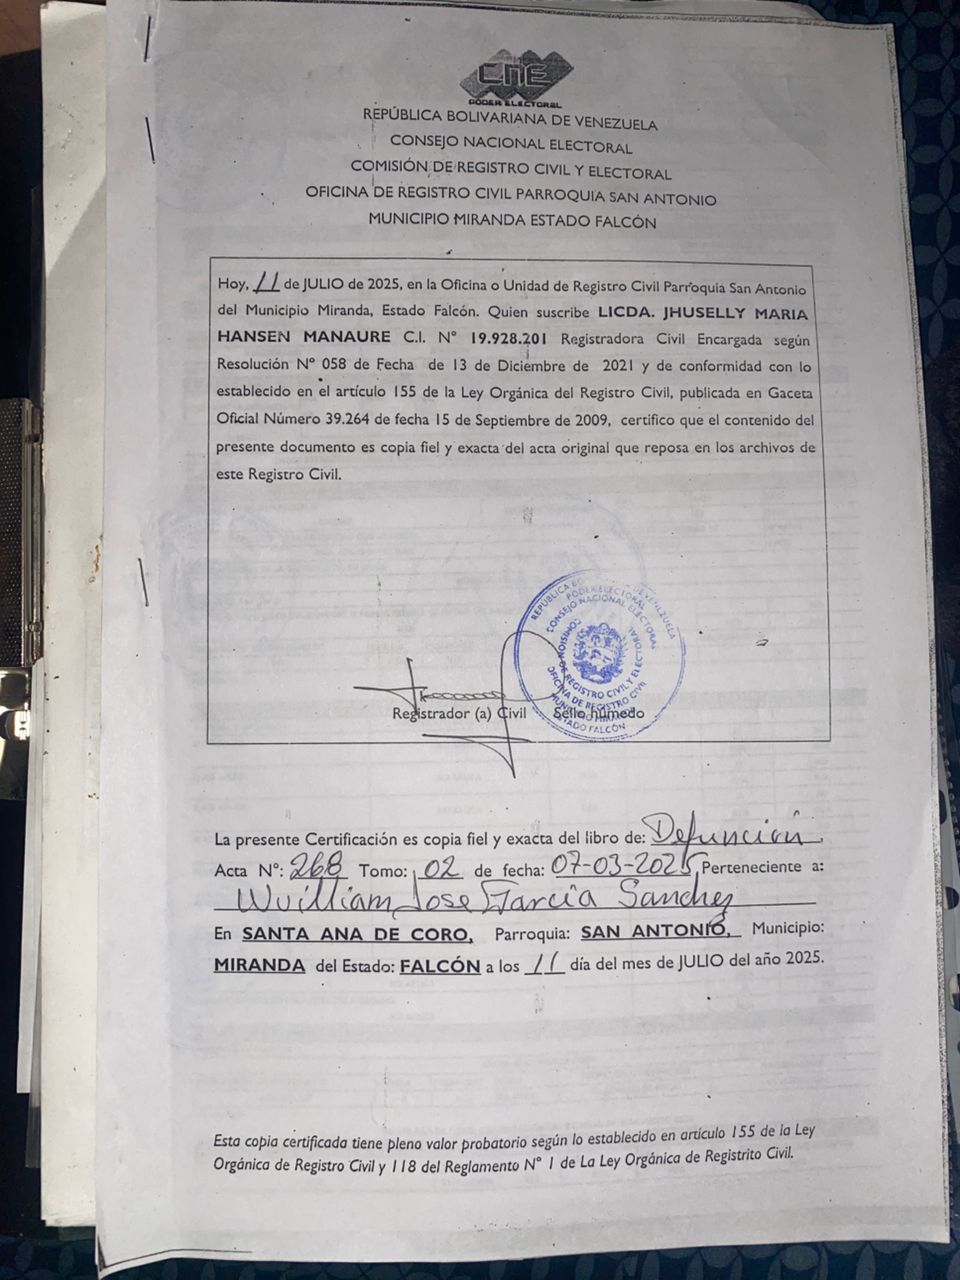 CNE
PODER ELECTORAL
REPÚBLICA BOLIVARIANA DE VENEZUELA
CONSEJO NACIONAL ELECTORAL
COMISIÓN DE REGISTRO CIVIL Y ELECTORAL
OFICINA DE REGISTRO CIVIL PARROQUIA SAN ANTONIO
MUNICIPIO MIRANDA ESTADO FALCÓN
Hoy, 11 de JULIO de 2025, en la Oficina o Unidad de Registro Civil Parroquia San Antonio
del Municipio Miranda, Estado Falcón. Quien suscribe LICDA. JHUSELLY MARIA
HANSEN MANAURE C.I. N° 19.928.201 Registradora Civil Encargada según
Resolución N° 058 de Fecha de 13 de Diciembre de 2021 y de conformidad con lo
establecido en el artículo 155 de la Ley Orgánica del Registro Civil, publicada en Gaceta
Oficial Número 39.264 de fecha 15 de Septiembre de 2009, certifico que el contenido del
presente documento es copia fiel y exacta del acta original que reposa en los archivos de
este Registro Civil.
REPÚBLICA BOLIVARIANA DE VENEZUELA
PODER ELECTORAL
CONSEJO NACIONAL ELECTORAL
COMISION DE REGISTRO CIVIL Y ELECTORAL
OFICINA DE REGISTRO CIVIL
MUNICIPIO MIRANDA
ESTADO FALCÓN
Registrador (a) Civil Sello húmedo
La presente Certificación es copia fiel y exacta del libro de: Defunción
Acta N°: 268 Tomo: 02 de fecha: 07-03-2025 Perteneciente a:
Wuilliam Jose Garcia Sanchez
En SANTA ANA DE CORO, Parroquia: SAN ANTONIO, Municipio:
MIRANDA del Estado: FALCÓN a los 11 día del mes de JULIO del año 2025.
Esta copia certificada tiene pleno valor probatorio según lo establecido en artículo 155 de la Ley
Orgánica de Registro Civil y 118 del Reglamento N° 1 de La Ley Orgánica de Registrito Civil.